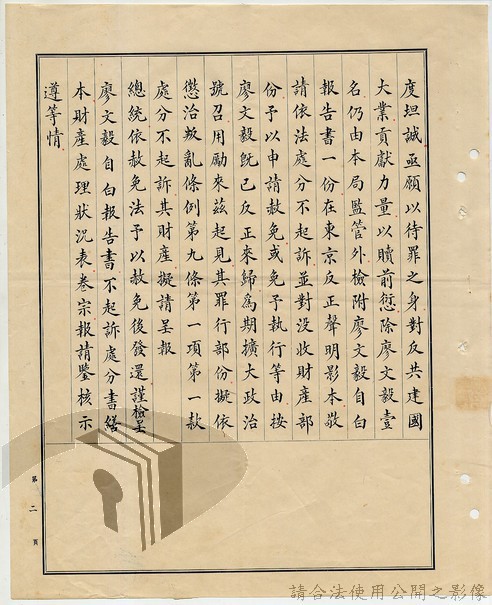 度坦誠亟願以待罪之身對反共建國
大業貢獻力量以贖前愆除廖文毅壹
名仍由本局監管外檢附廖文毅自白
報告書一份在東京反正聲明影本敬
請依法處分不起訴並對沒收財產部
份予以申請赦免或免予執行等由按
廖文毅旣已反正來歸為期擴大政治
號召用勵來茲起見其罪行部份擬依
懲治叛亂條例第九條第一項第一款
處分不起訴其財產擬請呈報
總統依赦免法予以赦免後發還謹檢呈
廖文毅自白報告書不起訴處分書繕
本財產處理狀況表卷宗報請鑒核示
遵等情
第二頁
請合法使用公開之影像